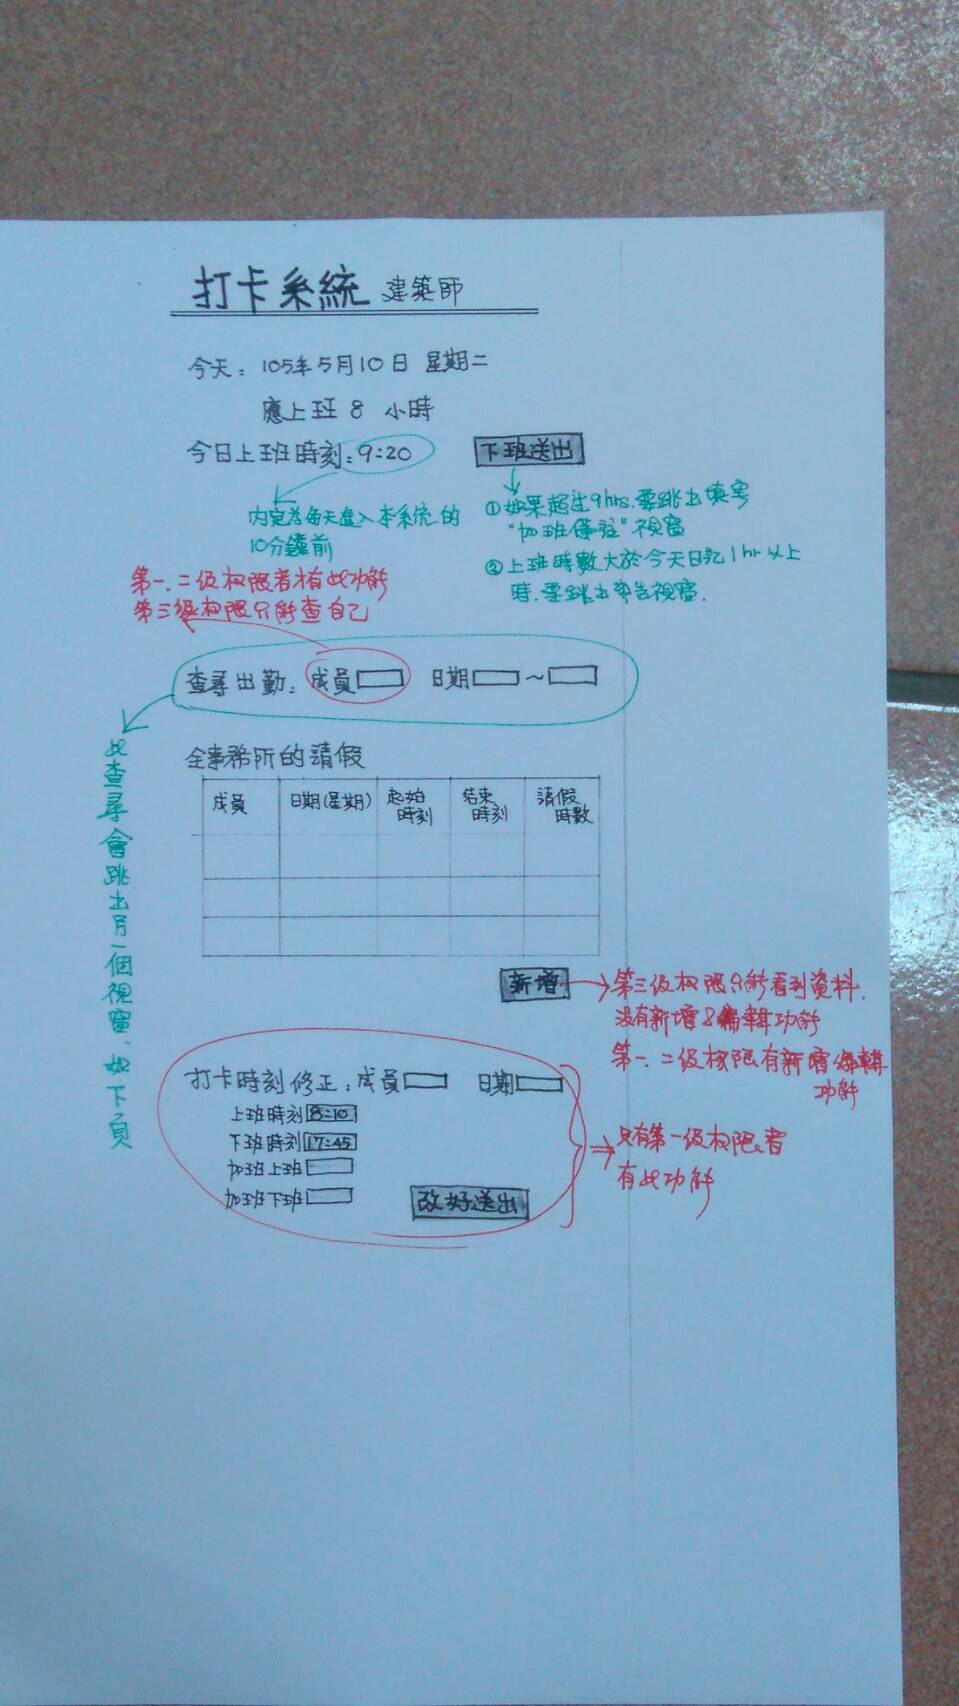 打卡系統 建築師
今天：105年5月10日 星期二
應上班 8 小時
今日上班時刻：9:20
下班送出
內定為每天進入本系統的
10分鐘前
①如果超過9hrs.要跳出填寫
"加班備註"視窗
②上班時數大於今天日記1hr以上
時.要跳出警告視窗.
第一.二級权限者才有此功能
第三級权限只能查自己
查尋出勤：成員 日期 ～
此查尋會跳出另一個視窗、如下頁
全事務所的請假
成員 日期(星期) 起始時刻 結束時刻 請假時數
新增
第三級权限只能看到資料.
沒有新增&編輯功能
第一.二級权限有新增編輯
功能
打卡時刻修正：成員 日期
上班時刻 8:10
下班時刻 17:45
加班上班
加班下班
改好送出
只有第一級权限者
有此功能